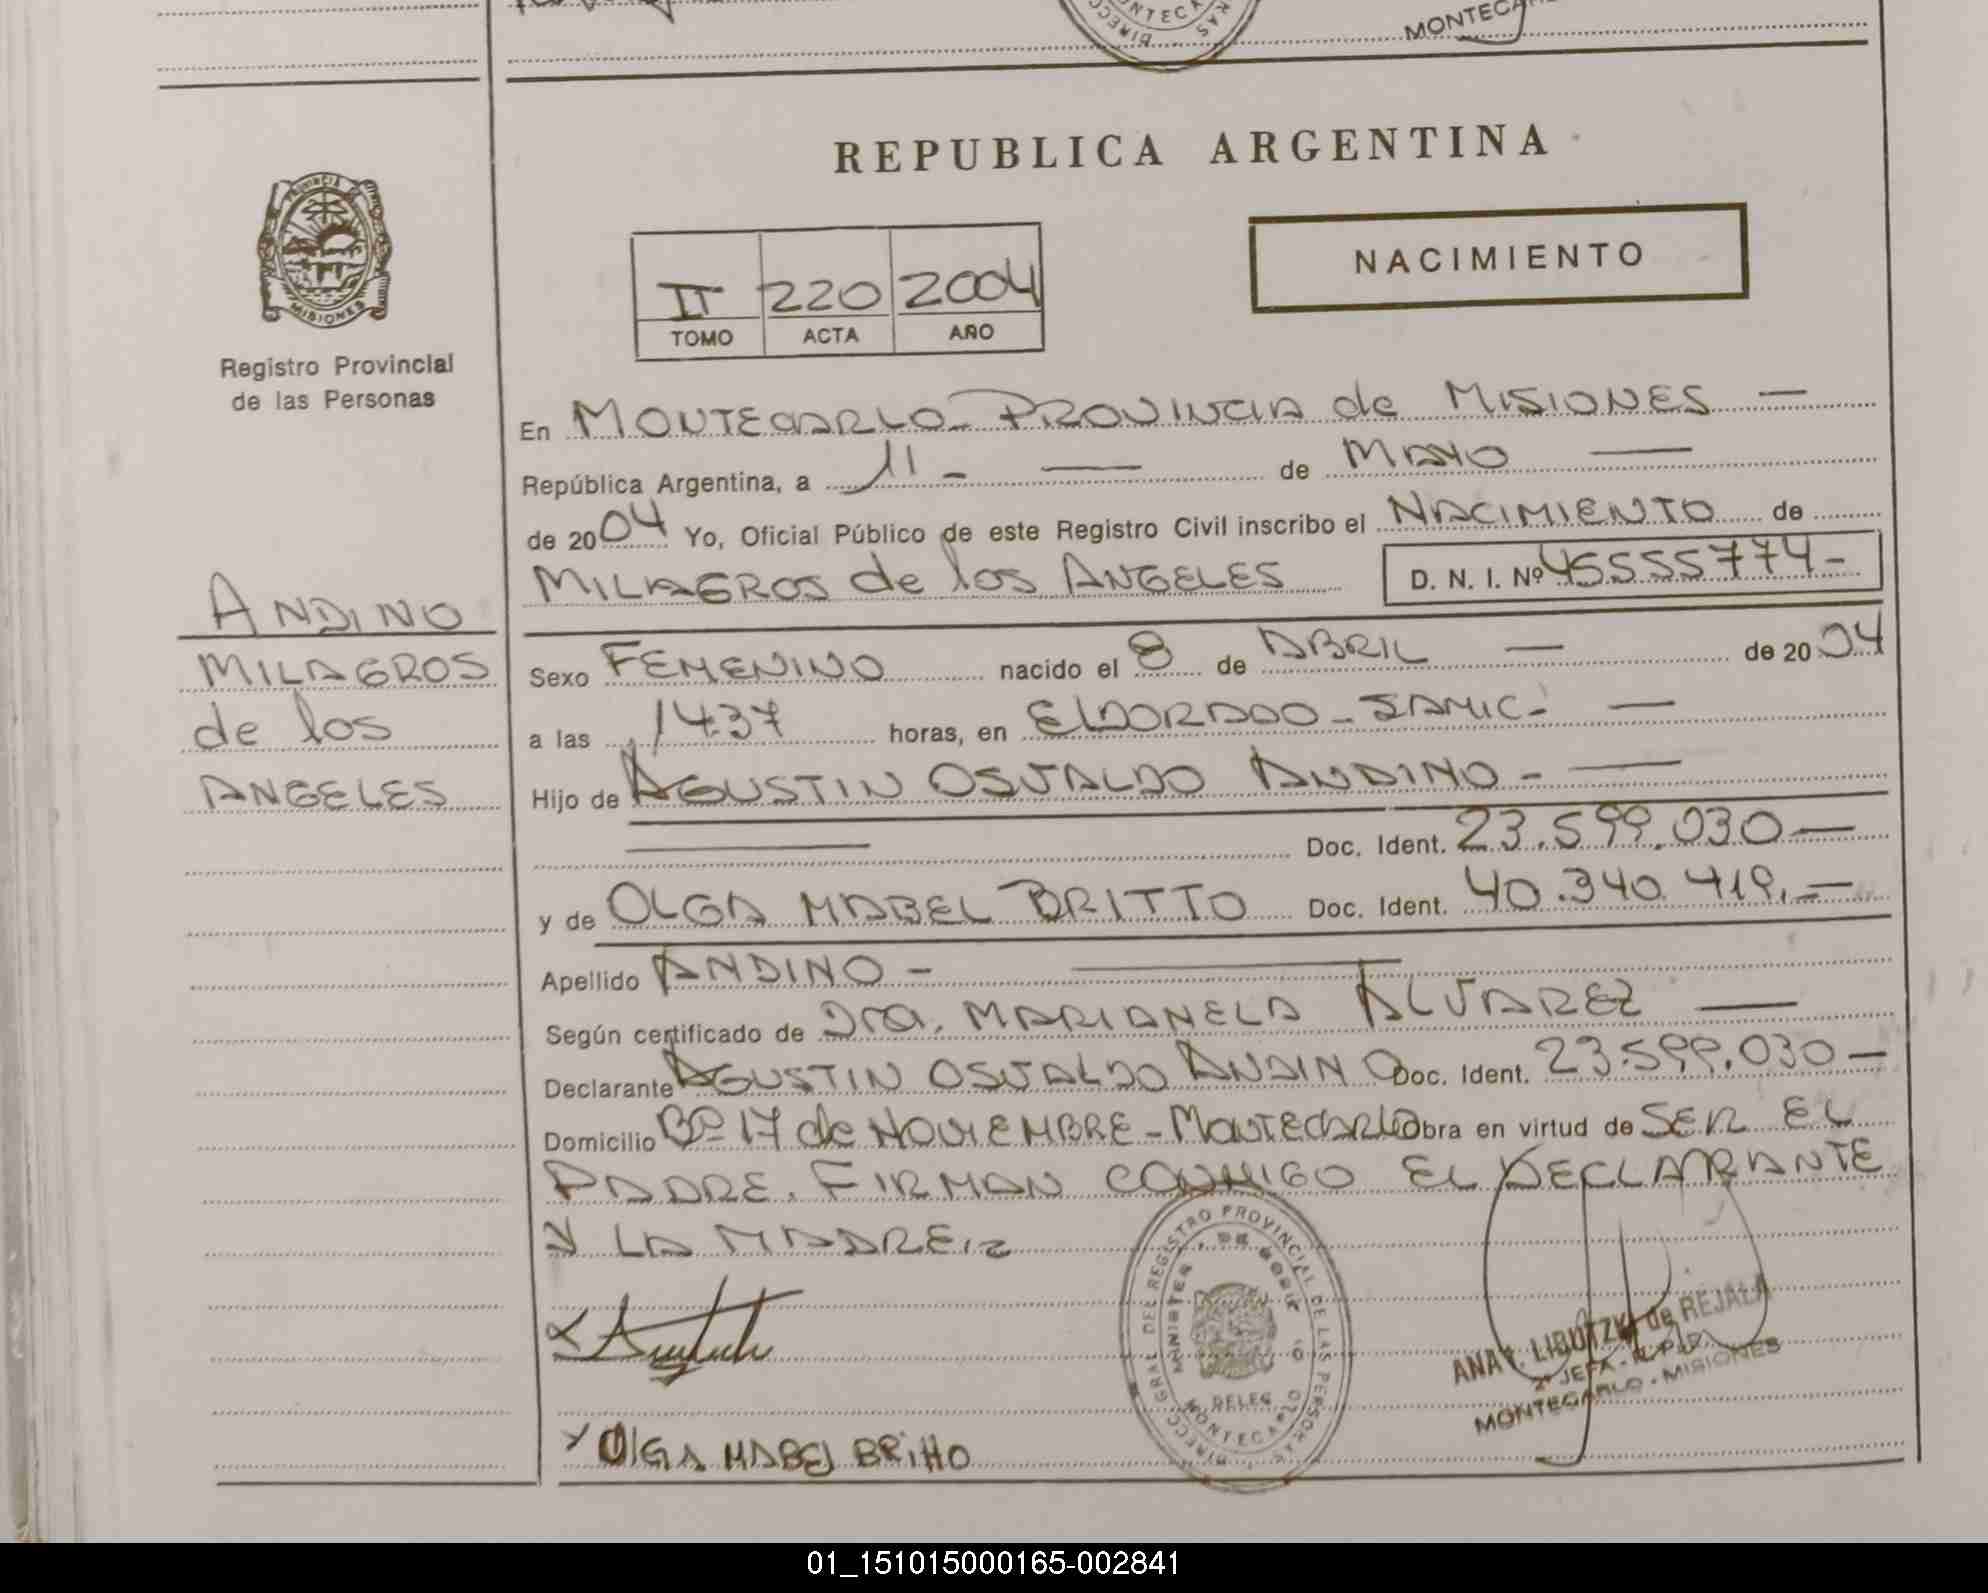 MONTECA
REPUBLICA ARGENTINA
NACIMIENTO
II 220 2004
TOMO ACTA AÑO
PROVINCIA DE
MISIONES
Registro Provincial
de las Personas
ANDINO
MILAGROS
de los
ANGELES
En MONTECARLO - PROVINCIA de MISIONES —
República Argentina, a 11 - — de MAYO —
de 2004 Yo, Oficial Público de este Registro Civil inscribo el NACIMIENTO de
MILAGROS de los ANGELES D. N. I. Nº 45555774-
Sexo FEMENINO nacido el 8 de ABRIL — de 2004
a las 1437 horas, en ELDORADO - SAMIC- —
Hijo de AGUSTIN OSVALDO ANDINO - —
— Doc. Ident. 23.599.030 —
y de OLGA MABEL BRITTO Doc. Ident. 40.340.419. —
Apellido ANDINO - —
Según certificado de Dra. MARIANELA ALVAREZ —
Declarante AGUSTIN OSVALDO ANDINO Doc. Ident. 23.599.030 —
Domicilio Bº 17 de NOVIEMBRE - MONTECARLO Obra en virtud de SER EL
PADRE. FIRMAN CONMIGO EL DECLARANTE
Y LA MADRE.
DIRECC. GRAL. DEL REGISTRO PROVINCIAL DE LAS PERSONAS
DELEG.
MONTECARLO
ANA LIBUTZKI de REJALA
2º JEFA - R.P.P.
MONTECARLO - MISIONES
OLGA MABEL BRITTO
01_151015000165-002841